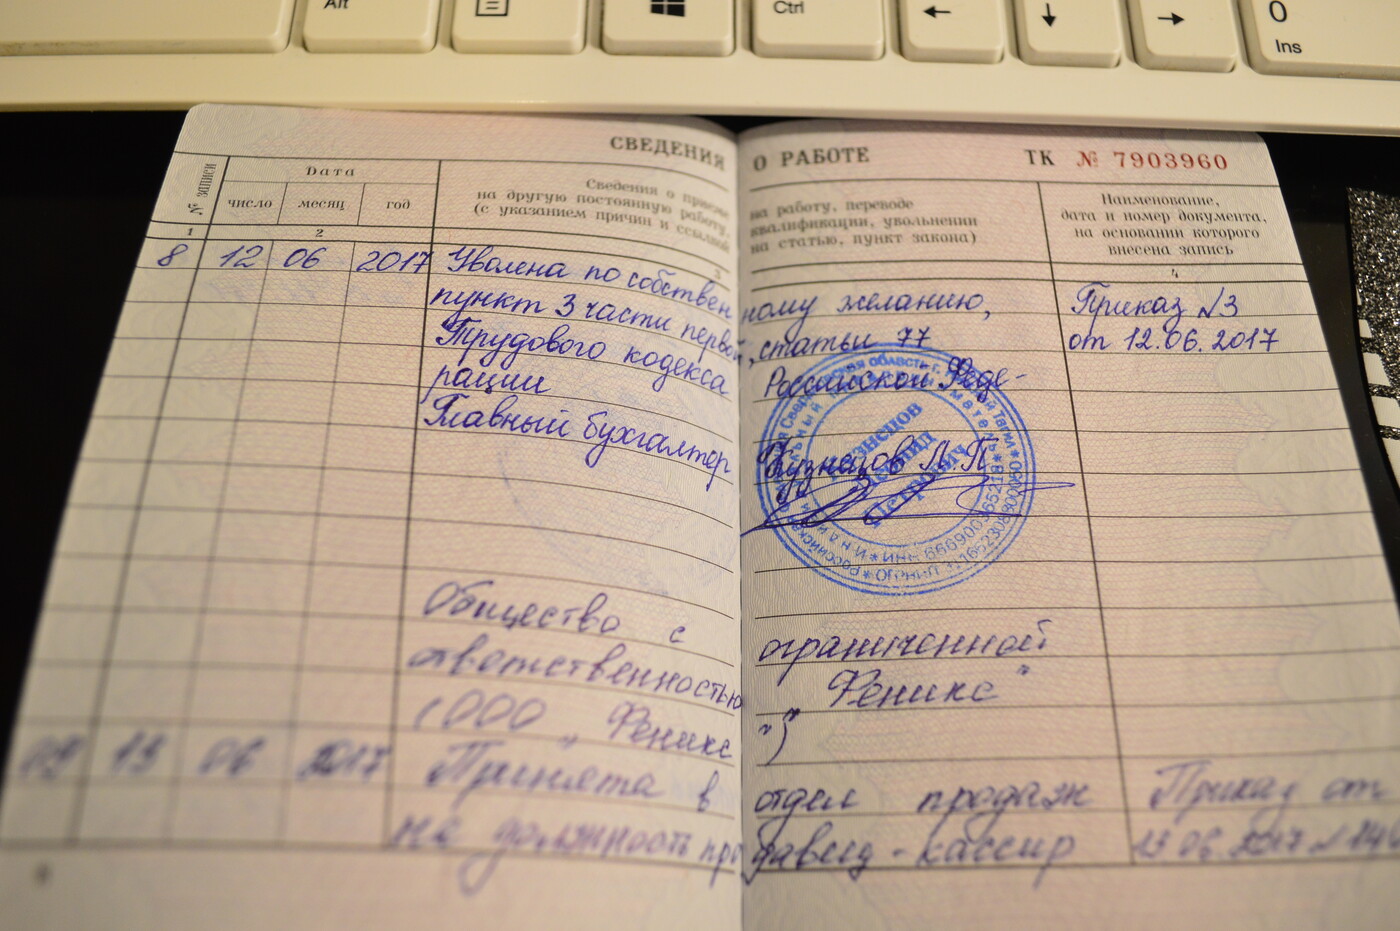 Alt
Ctrl
0
Ins
СВЕДЕНИЯ О РАБОТЕ
ТК № 7903960
№ записи
Дата
число месяц год
Сведения о приеме на работу, переводе
на другую постоянную работу, квалификации, увольнении
(с указанием причин и ссылкой на статью, пункт закона)
Наименование,
дата и номер документа,
на основании которого
внесена запись
1 2 3 4
8 12 06 2017 Уволена по собственному желанию, Приказ №3
пункт 3 части первой, статьи 77 от 12.06.2017
Трудового кодекса Российской Феде-
рации
Главный бухгалтер Кузнецов Л.П
Кузнецов
Леонид
Петрович
Общество с ограниченной
ответственностью „Феникс"
(ООО „Феникс")
09 13 06 2017 Принята в отдел продаж Приказ от
на должность продавец-кассир 13 06.2017